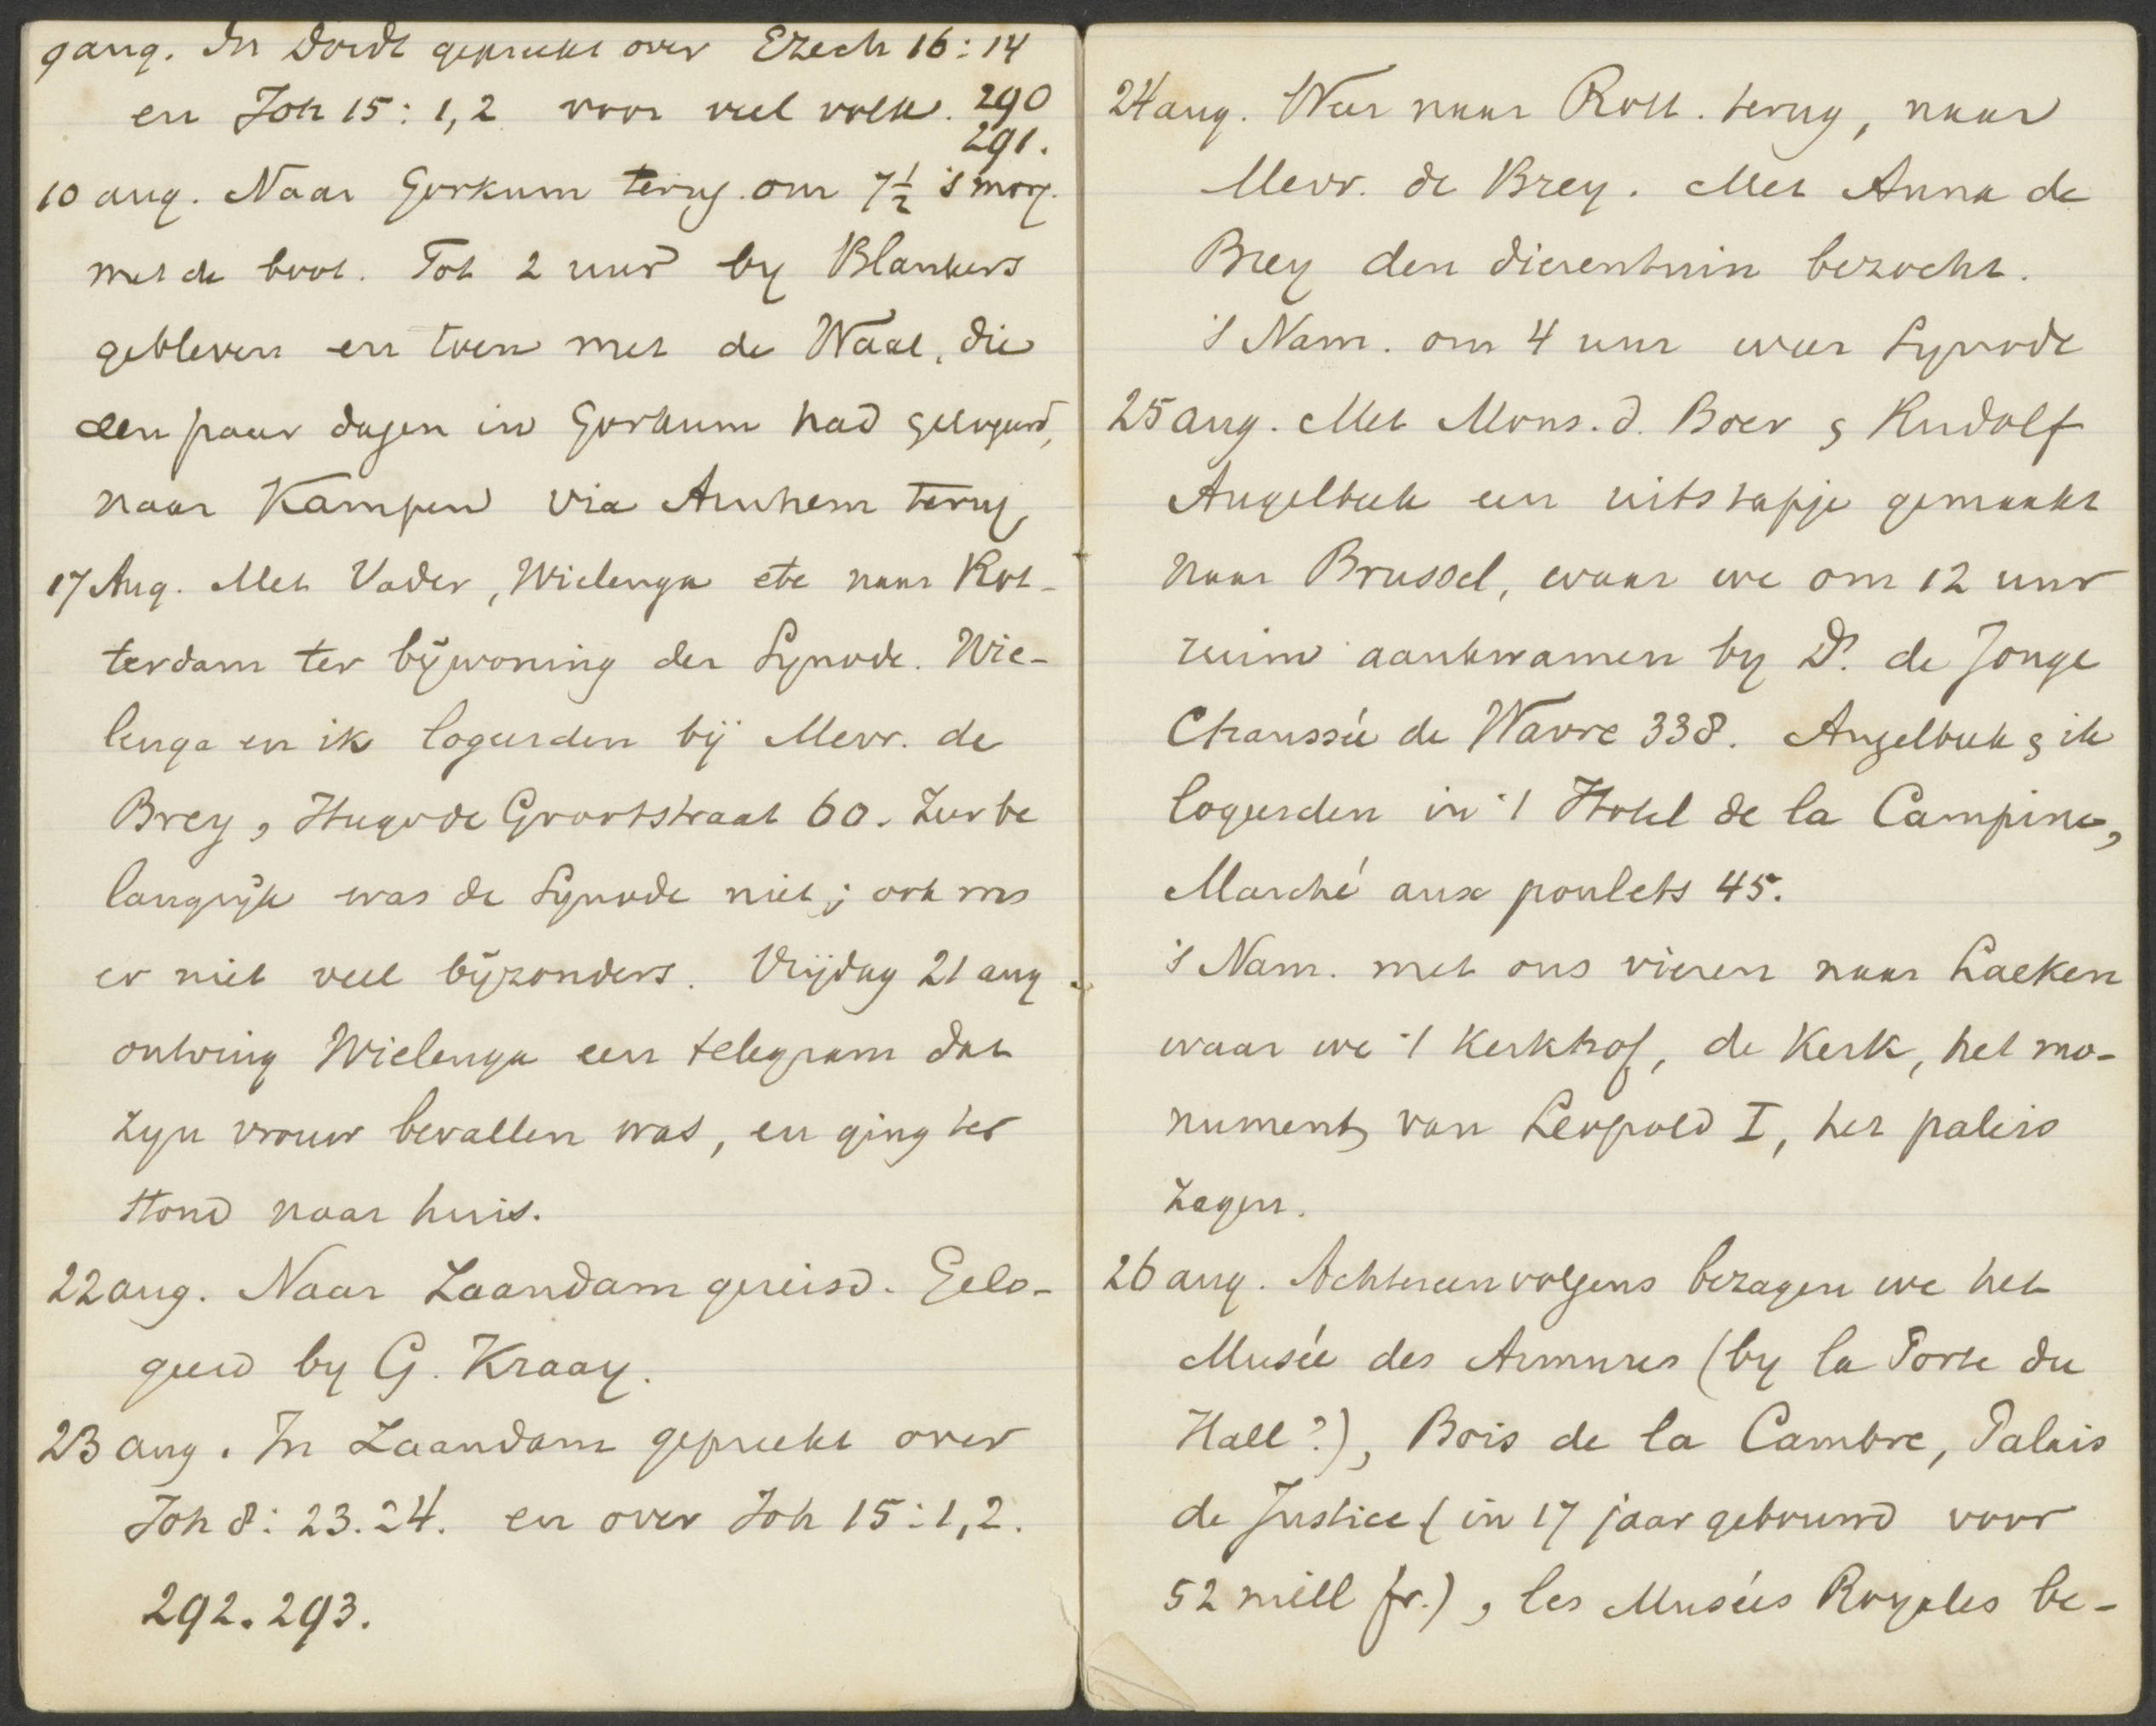 9 aug. In Dordt gepreekt over Ezech 16:14
en Joh 15: 1,2 voor veel volk. 290
291.
10 aug. Naar Gorkum terug om 7½ 's morg.
met de boot. Tot 2 uur by Blankers
gebleven en toen met de Waal, die
een paar dagen in Gorkum had gelogeerd,
naar Kampen via Arnhem terug.
17 Aug. Met Vader, Wielenga etc naar Rot-
terdam ter bijwoning der Synode. Wie-
lenga en ik logeerden bij Mevr. de
Brey, Hugo de Grootstraat 60. Zeer be
langrijk was de Synode niet; ook was
er niet veel bijzonders. Vrijdag 21 aug
ontving Wielenga een telegram dat
zyn vrouw bevallen was, en ging ter
stond naar huis.
22 aug. Naar Zaandam gereisd. Gelo-
geerd by G. Kraay.
23 aug. In Zaandam gepreekt over
Joh 8: 23.24. en over Joh 15:1,2.
292. 293.
24 aug. Weer naar Rott. terug, naar
Mevr. de Brey. Met Anna de
Brey den dierentuin bezocht.
's Nam. om 4 uur weer Synode
25 aug. Met Mons. d. Boer & Rudolf
Angelbeek een uitstapje gemaakt
naar Brussel, waar we om 12 uur
ruim aankwamen by Ds. de Jonge
Chaussée de Wavre 338. Angelbeek & ik
logeerden in 't Hotel de la Campine,
Marché aux poulets 45.
's Nam. met ons vieren naar Laeken
waar we 't kerkhof, de kerk, het mo-
nument van Leopold I, het paleis
zagen.
26 aug. Achtereenvolgens bezagen we het
Musée des Armures (by la Porte du
Hall?), Bois de la Cambre, Palais
de Justice (in 17 jaar gebouwd voor
52 mill fr.), les Musées Royales be-